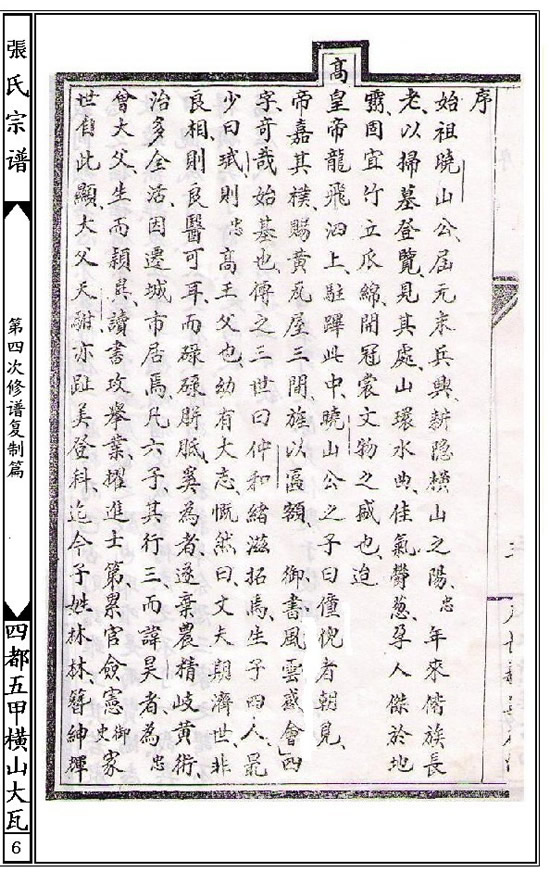 序
始祖曉山公屆元末兵興耕隐橫山之陽忠年來偕族長
老以掃墓登覽見其處山環水曲佳氣鬱葱孕人傑於地
靈固宜竹立瓜綿開冠裳文物之盛也迨
高皇帝龍飛泗上駐蹕此中曉山公之子曰僮倪者朝見
帝嘉其樸賜黄瓦屋三間旌以匾額御書風雲盛會四
字奇哉始基也傳之三世曰仲和緒滋拓焉生子四人最
少曰珷則忠高王父也幼有大志慨然曰丈夫期濟世非
良相則良醫可耳而碌碌胼胝奚為者遂棄農精岐黄術
治多全活因遷城市居焉凡六子其行三而諱昊者為忠
曾大父生而穎異讀書攻舉業擢進士第累官僉憲御史家
世自此顯大父天酣亦趾美登科迄今子姓林林簪紳輝
張氏宗谱
第四次修谱复制篇
四都五甲横山大瓦
6